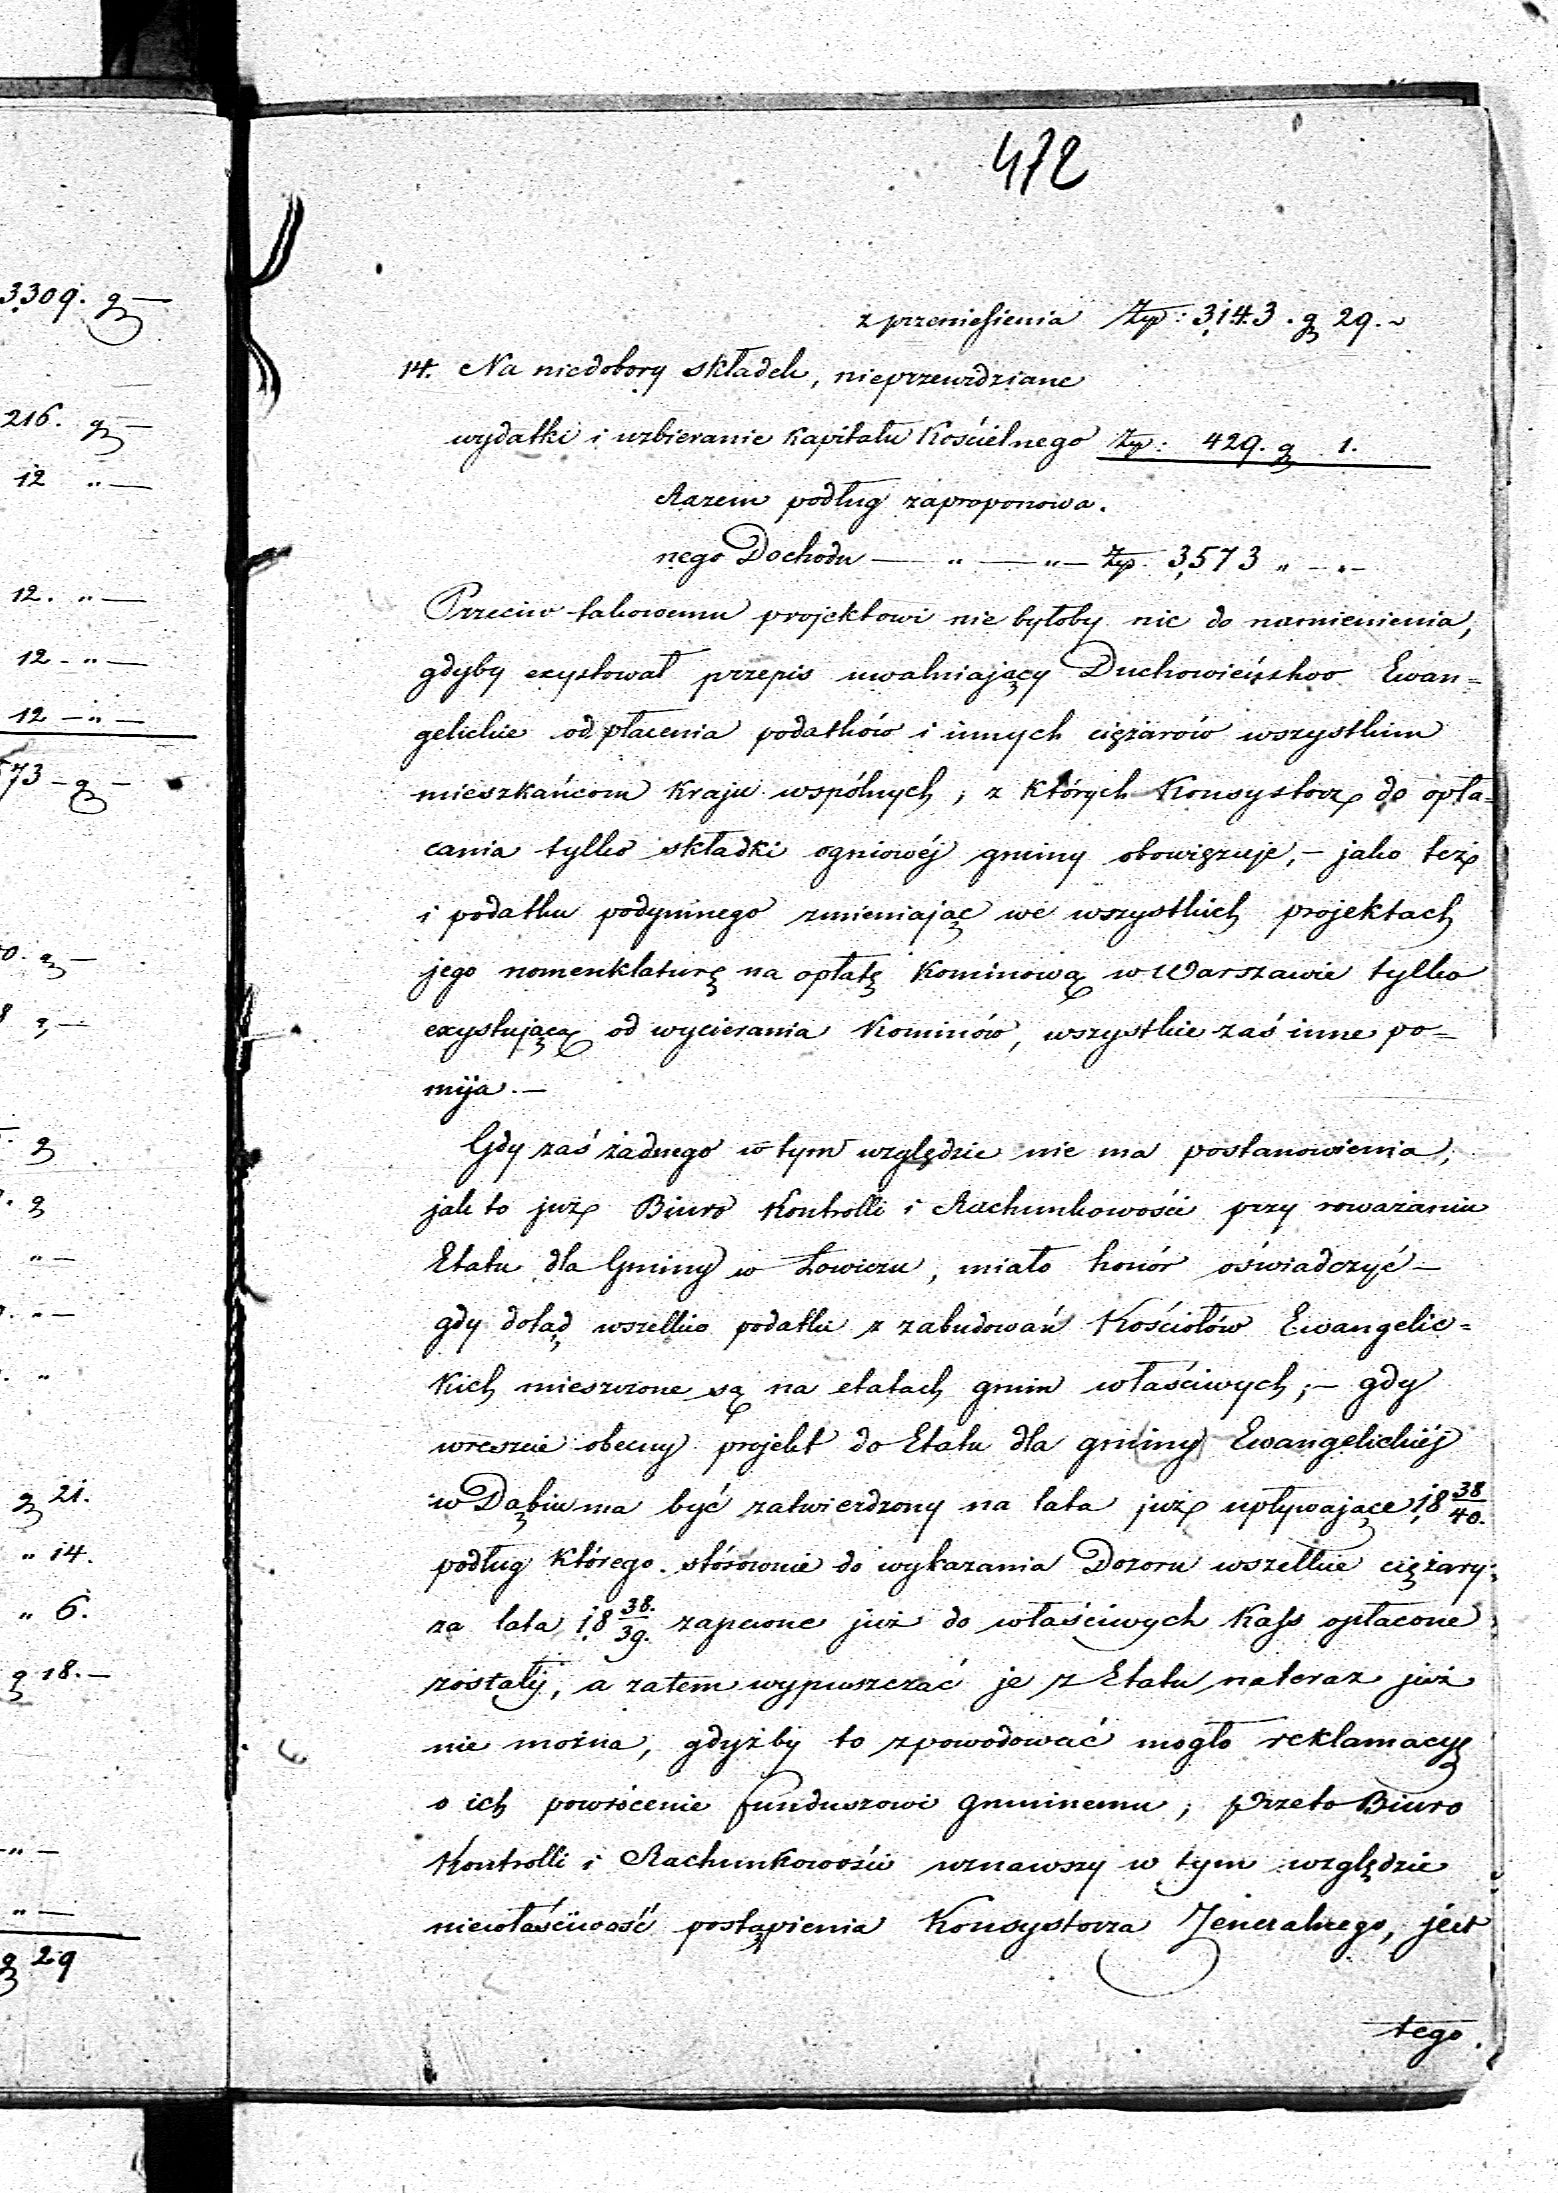 472
3309. g —
216. g —
12 „ —
12. „ —
12 - „ —
12 - „ —
573 - g -
g 21.
„ 14.
„ 6.
g 18. —
„ —
g 29
z przeniesienia Złp: 3,143. g 29. ~
14. Na niedobory składek, nieprzewidziane
wydatki i uzbieranie Kapitału Kościelnego Złp: 429. g 1.
Razem podług zaproponowa.
nego Dochodu — „ — „ — Złp. 3,573 „ - „ -
Przeciw takowemu projektowi nie byłoby nic do namienienia,
gdyby exystował przepis uwalniający Duchowieństwo Ewan=
gelickie od płacenia podatków i innych ciężarów wszystkim
mieszkańcom Kraju wspólnych, z których Konsystorz do opła=
cania tylko składki ogniowéj gminy obowięzuje, – jako też
i podatku podymnego zmieniając we wszystkich projektach
jego nomenklaturę na opłatę Kominową w Warszawie tylko
exystującą od wycierania Kominów, wszystkie zaś inne po=
mija. —
Gdy zaś żadnego w tym względzie nie ma postanowienia,
jak to już Biuro Kontrolli i Rachunkowości przy rozważaniu
Etatu dla Gminy w Łowiczu, miało honór oświadczyć —
gdy dotąd wszelkie podatki z zabudowań Kościołów Ewangelic=
kich mieszczone są na etatach gmin właściwych; – gdy
wreszcie obecny projekt do Etatu dla gminy Ewangelickiéj
w Dąbiu ma być zatwierdzony na lata już upływające 18 38/40.
podług którego stósownie do wykazania Dozoru wszelkie ciężary
za lata 18 38./39. zapewne już do właściwych Kass opłacone
zostały, a zatem wypuszczać je z Etatu na teraz już
nie można, gdyżby to spowodować mogło reklamacyę
o ich powrócenie funduszowi gminnemu; przeto Biuro
Kontrolli i Rachunkowości uznawszy w tym względzie
niewłaściwość postąpienia Konsystorza Jeneralnego, jest
tego.